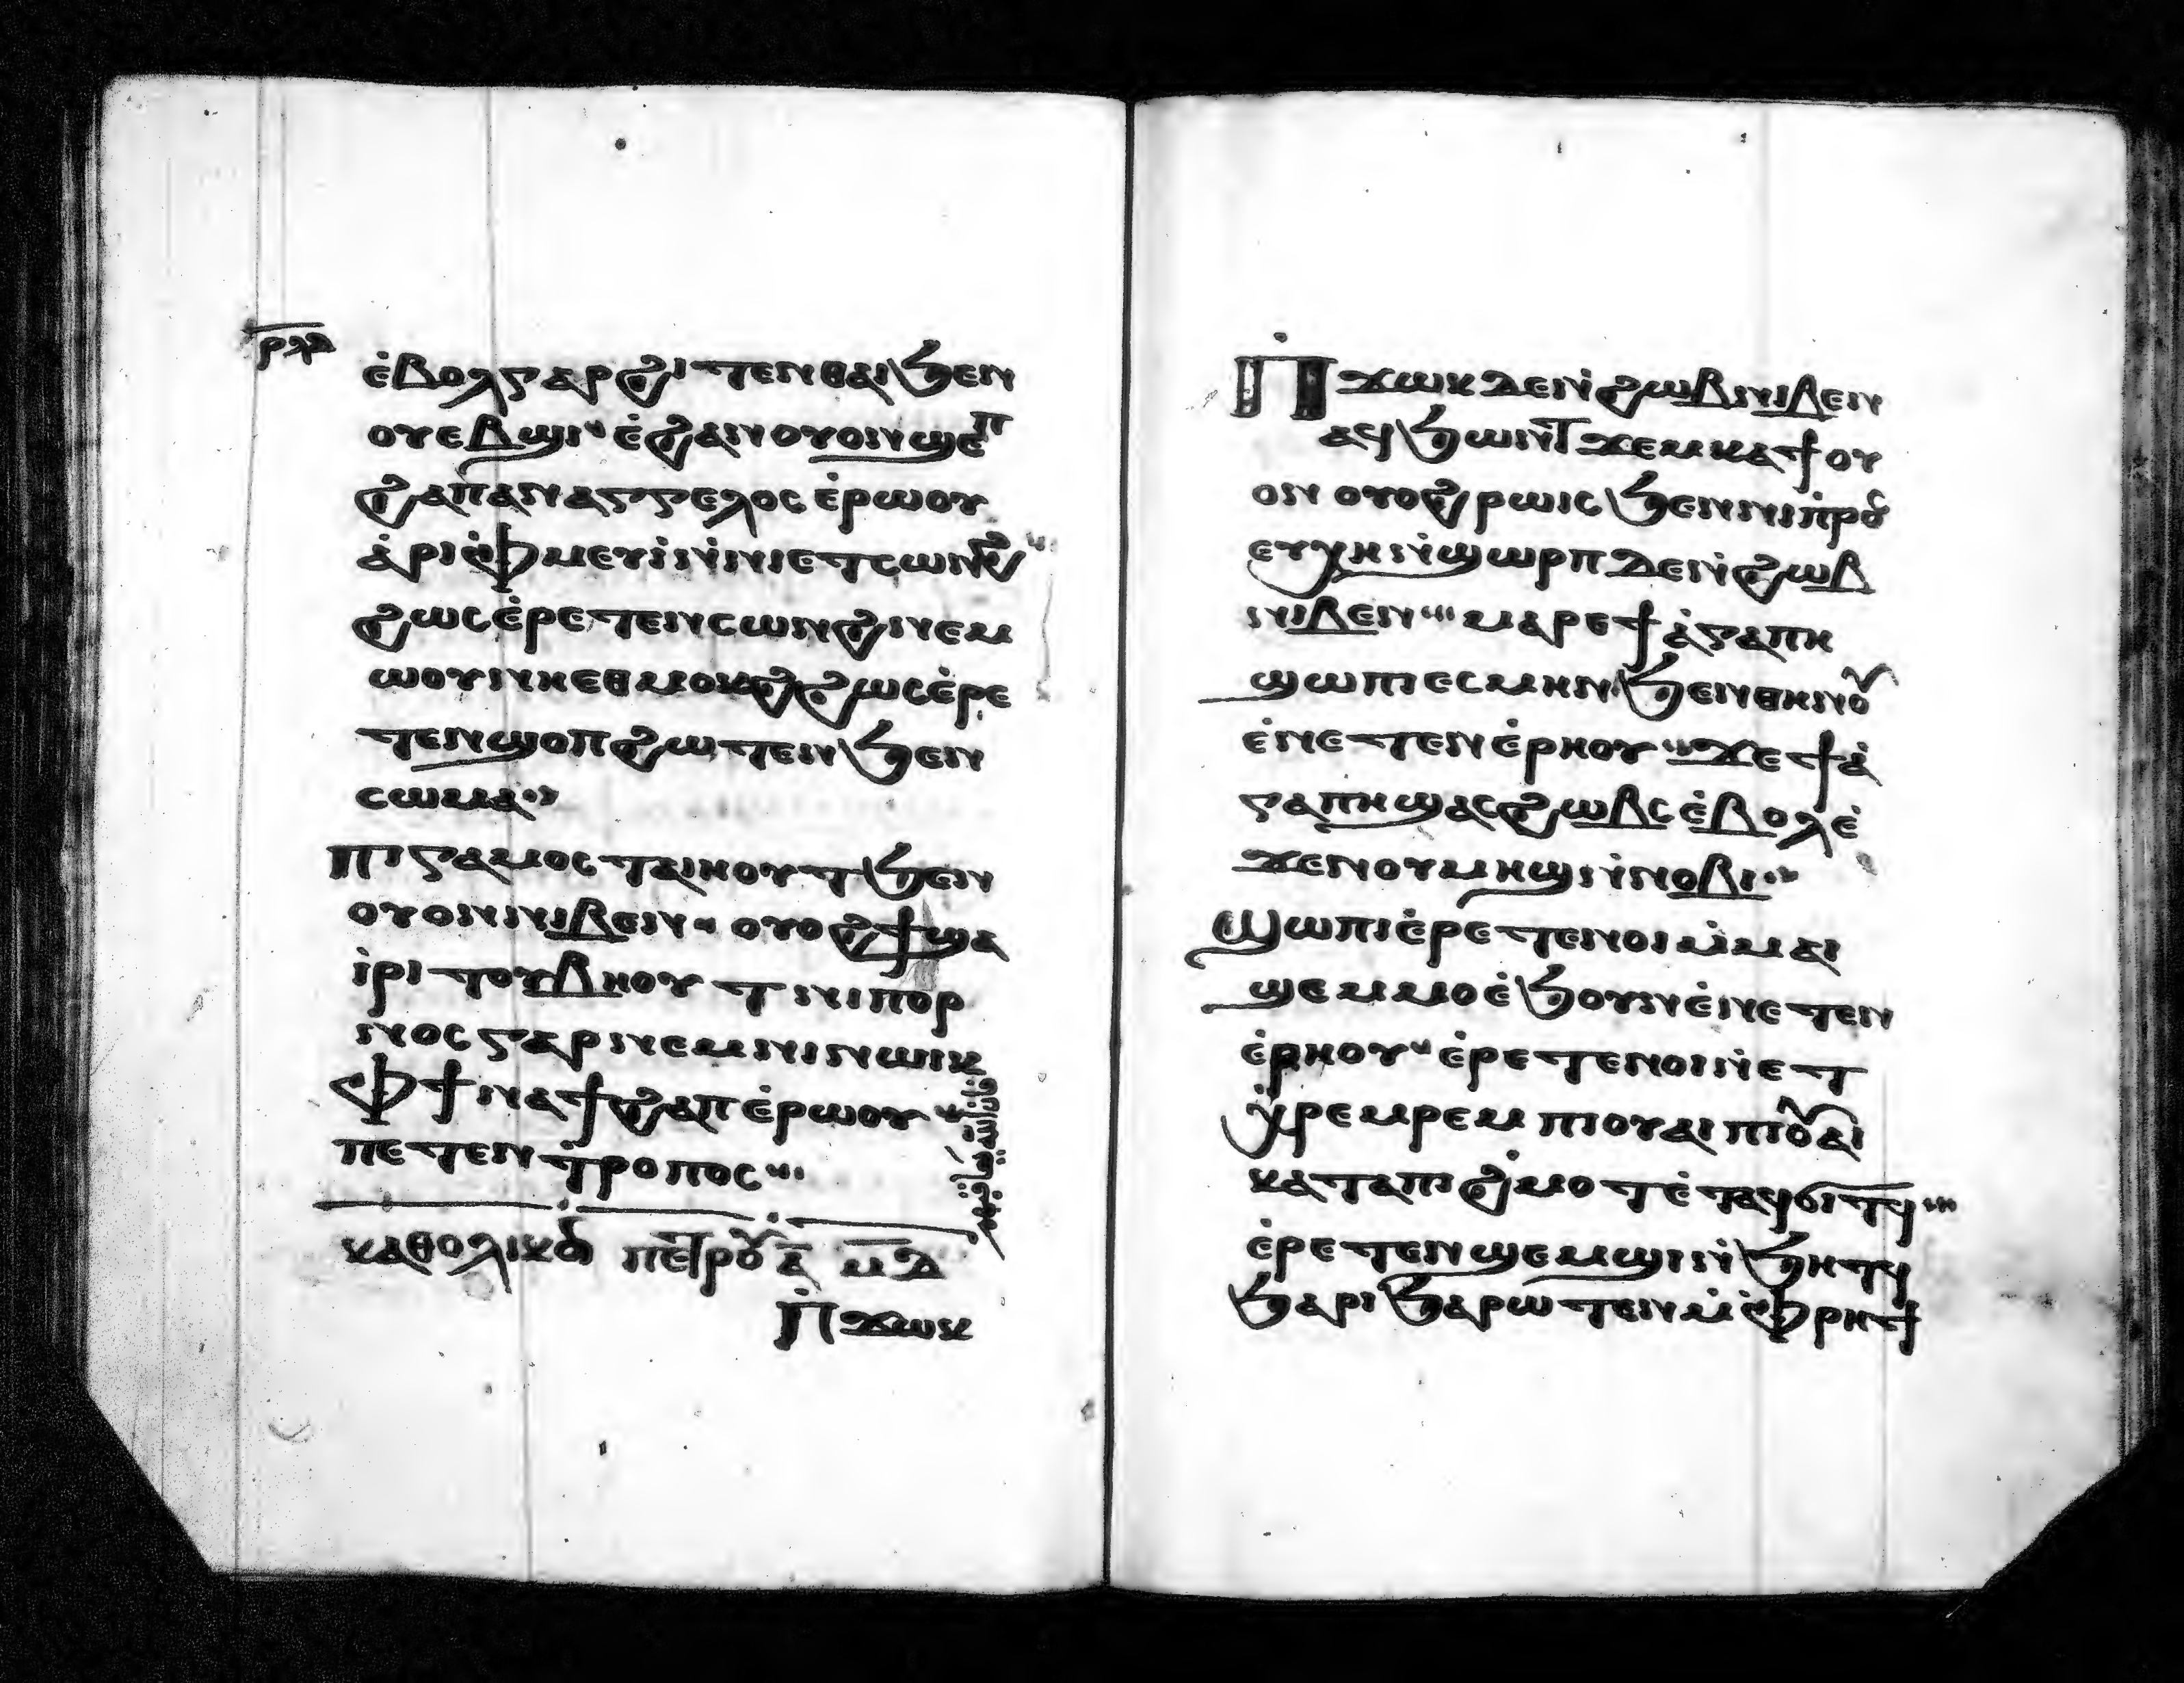 ⲣⲗⲇ
ⲉ̀ⲃⲟⲗⲅⲁⲣϩⲓⲧⲉⲛⲑⲁⲓϧⲉⲛ
ⲟⲩⲉⲃϣⲓ ⲉ̀ϩⲁⲛⲟⲩⲟⲛϣⲉⲡ
ϩⲁⲡⲁⲛⲁⲅⲅⲉⲗⲟⲥ ⲉ̀ⲣⲱⲟⲩ
ⲁ̀ⲣⲓⲫ̀ⲙⲉⲩⲓ̀ⲛ̀ⲛⲓⲉⲧⲥⲱⲛϩ
ϩⲱⲥⲉ̀ⲣⲉⲧⲉⲛⲥⲱⲛϩⲛⲉⲙ
ⲱⲟⲩⲛⲏⲉⲑⲙⲟⲕϩϩⲱⲥⲉ̀ⲣⲉ
ⲧⲉⲛϣⲟⲡϩⲱⲧⲉⲛϧⲉⲛ
ⲥⲱⲙⲁ
ⲡⲓⲅⲁⲙⲟⲥⲧⲁⲓⲏⲟⲩⲧϧⲉⲛ
ⲟⲩⲟⲛⲛⲓⲃⲉⲛ ⲟⲩⲟϩϯϣⲁ
ⲓ̀ⲣⲓⲧⲟⲩⲃⲏⲟⲩⲧⲛⲓⲡⲟⲣ
ⲛⲟⲥⲅⲁⲣⲛⲉⲙⲛⲓⲛⲱⲓⲕ
ⲫϯⲛⲁϯϩⲁⲡⲉ̀ⲣⲱⲟⲩ
ⲡⲉⲧⲉⲛⲧ̀ⲣⲟⲡⲟⲥ
ⲕⲁⲑⲟⲗⲓⲕⲟⲛ ⲡⲉⲧⲣⲟⲩ ⲁ̅ ⲙ̅ⲇ̅
ⲡ̀ϫⲱⲕ
ⲡ̀ϫⲱⲕⲇⲉⲛ̀ϩⲱⲃⲛⲓⲃⲉⲛ
ⲁϥϧⲱⲛⲧ̅ϫⲉⲙⲕⲁϯⲟⲩ
ⲟⲛ ⲟⲩⲟϩⲣⲱⲓⲥϧⲉⲛⲛⲓⲡ̀ⲣⲟⲥ
ⲉⲩⲭⲏⲛ̀ϣⲱⲣⲡ ⲇⲉⲛ̀ϩⲱⲃ
ⲛⲓⲃⲉⲛ ⲙⲁⲣⲉϯⲁ̀ⲅⲁⲡⲏ
ϣⲱⲡⲓⲉⲥⲙⲏⲛϧⲉⲛⲑⲏⲛⲟⲩ
ⲉ̀ⲛⲉⲧⲉⲛⲉ̀ⲣⲏⲟⲩ ϫⲉϯⲁ̀
ⲅⲁⲡⲏϣⲁⲥϩⲱⲃⲥⲉ̀ⲃⲟⲗⲉ̀
ϫⲉⲛⲟⲩⲙⲏϣⲛ̀ⲛⲟⲃⲓ
ϣⲱⲡⲓⲉ̀ⲣⲉⲧⲉⲛⲟⲓⲙ̀ⲙⲁⲓ
ϣⲉⲙⲙⲟⲉ̀ϧⲟⲩⲛⲉ̀ⲛⲉⲧⲉⲛ
ⲉ̀ⲣⲏⲟⲩ ⲉ̀ⲣⲉⲧⲉⲛⲟⲓⲛ̀ⲉⲧ
ⲭ̀ⲣⲉⲙⲣⲉⲙ ⲡⲓⲟⲩⲁⲓ ⲡⲓⲟⲩⲁⲓ
ⲕⲁⲧⲁⲡⲓϩ̀ⲙⲟⲧⲉ̀ⲧⲁϥϭⲓⲧϥ
ⲉ̀ⲣⲉⲧⲉⲛϣⲉⲙϣⲓⲛ̀ϧⲏⲧϥ
ϧⲁⲣⲓϧⲁⲣⲱⲧⲉⲛⲙ̀ⲫ̀ⲣⲏϯ